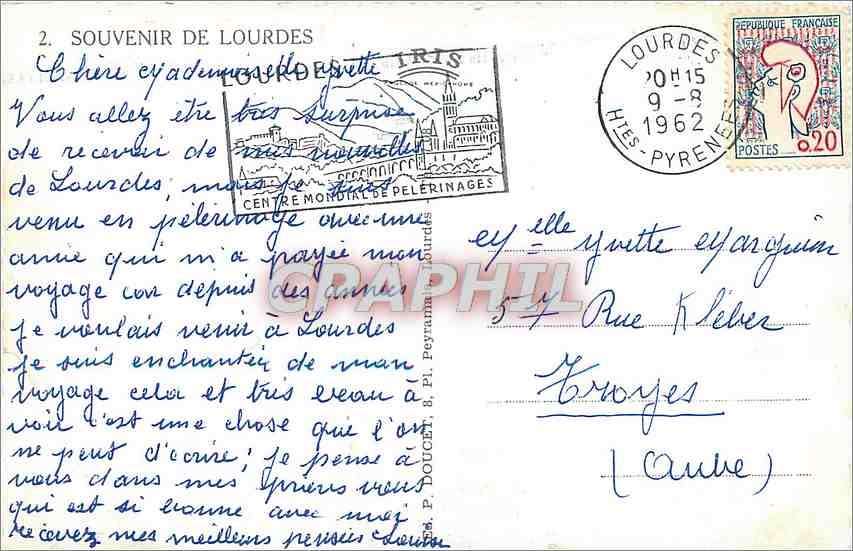 2. SOUVENIR DE LOURDES
Chère Mademoiselle Yvette
Vous allez être très surprise
de recevoir de mes nouvelles
de Lourdes, mais je suis
venu en pélerinage avec une
amie qui m'a payée mon
voyage car depuis des années
je voulais venir à Lourdes
je suis enchantée de mon
voyage cela et très beau à
voir c'est une chose que l'on
ne peut d'écrire; je pense à
vous dans mes prières vous
qui est si bonne avec moi
recevez mes meilleurs pensées Louise
LOURDES
IRIS
CENTRE MONDIAL DE PELERINAGES
LOURDES
20H15
9-8
1962
HTES-PYRENEES
REPUBLIQUE FRANÇAISE
POSTES 0,20
Ed. P. DOUCET, 8, Pl. Peyramale, Lourdes
CPAPHIL
Melle Yvette
57 Rue Kléber
Troyes
(Aube)